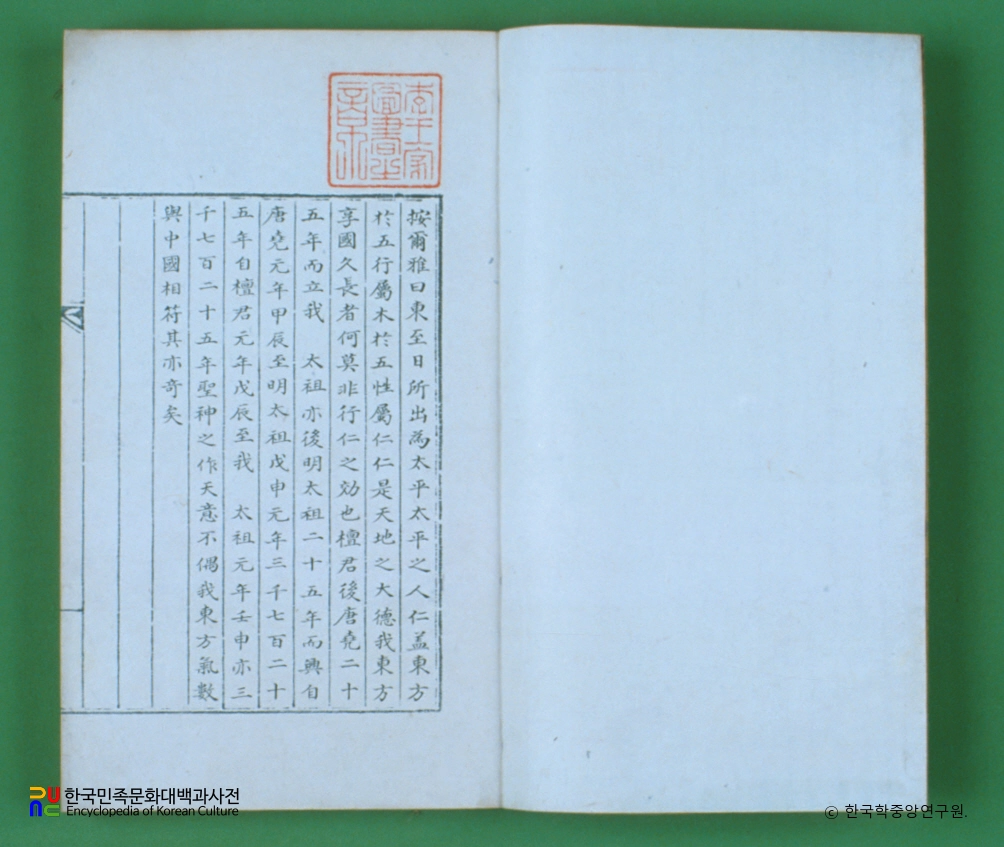 李王家
圖書之
章
按爾雅曰東至日所出為太平太平之人仁盖東方
於五行屬木於五性屬仁仁是天地之大德我東方
享國久長者何莫非行仁之効也檀君後唐堯二十
五年而立我 太祖亦後明太祖二十五年而興自
唐堯元年甲辰至明太祖戊申元年三千七百二十
五年自檀君元年戊辰至我 太祖元年壬申亦三
千七百二十五年聖神之作天意不偶我東方氣數
與中國相符其亦奇矣
한국민족문화대백과사전
Encyclopedia of Korean Culture
© 한국학중앙연구원.